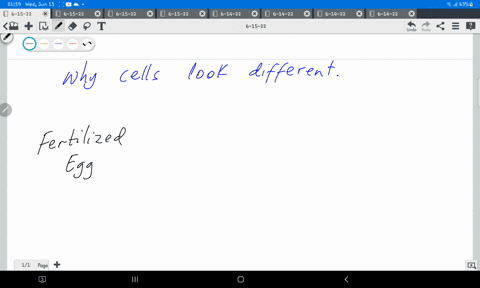 01:59 Wed, Jun 15
63%
6-15-22 6-15-22 6-15-22 6-15-22 6-14-22 6-14-22 6-14-22 6-14-22
T 6-15-22 Undo Redo
Why cells look different.
Fertilized
Egg
1/1 Page +